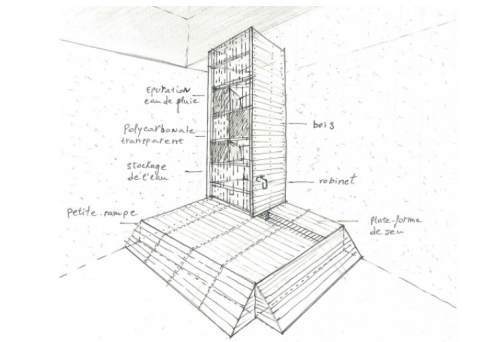 Epuration
eau de pluie
Polycarbonate
transparent
stockage
de l'eau
petite rampe
bois
robinet
plate-forme
de jeu